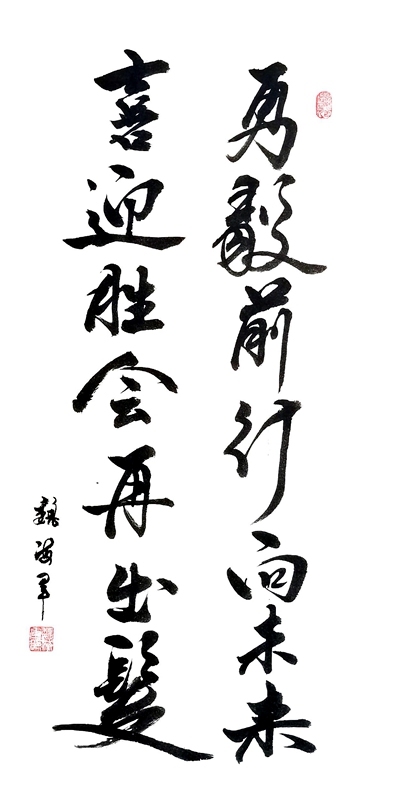 勇毅前行向未来
喜迎胜会再出髮
魏海军